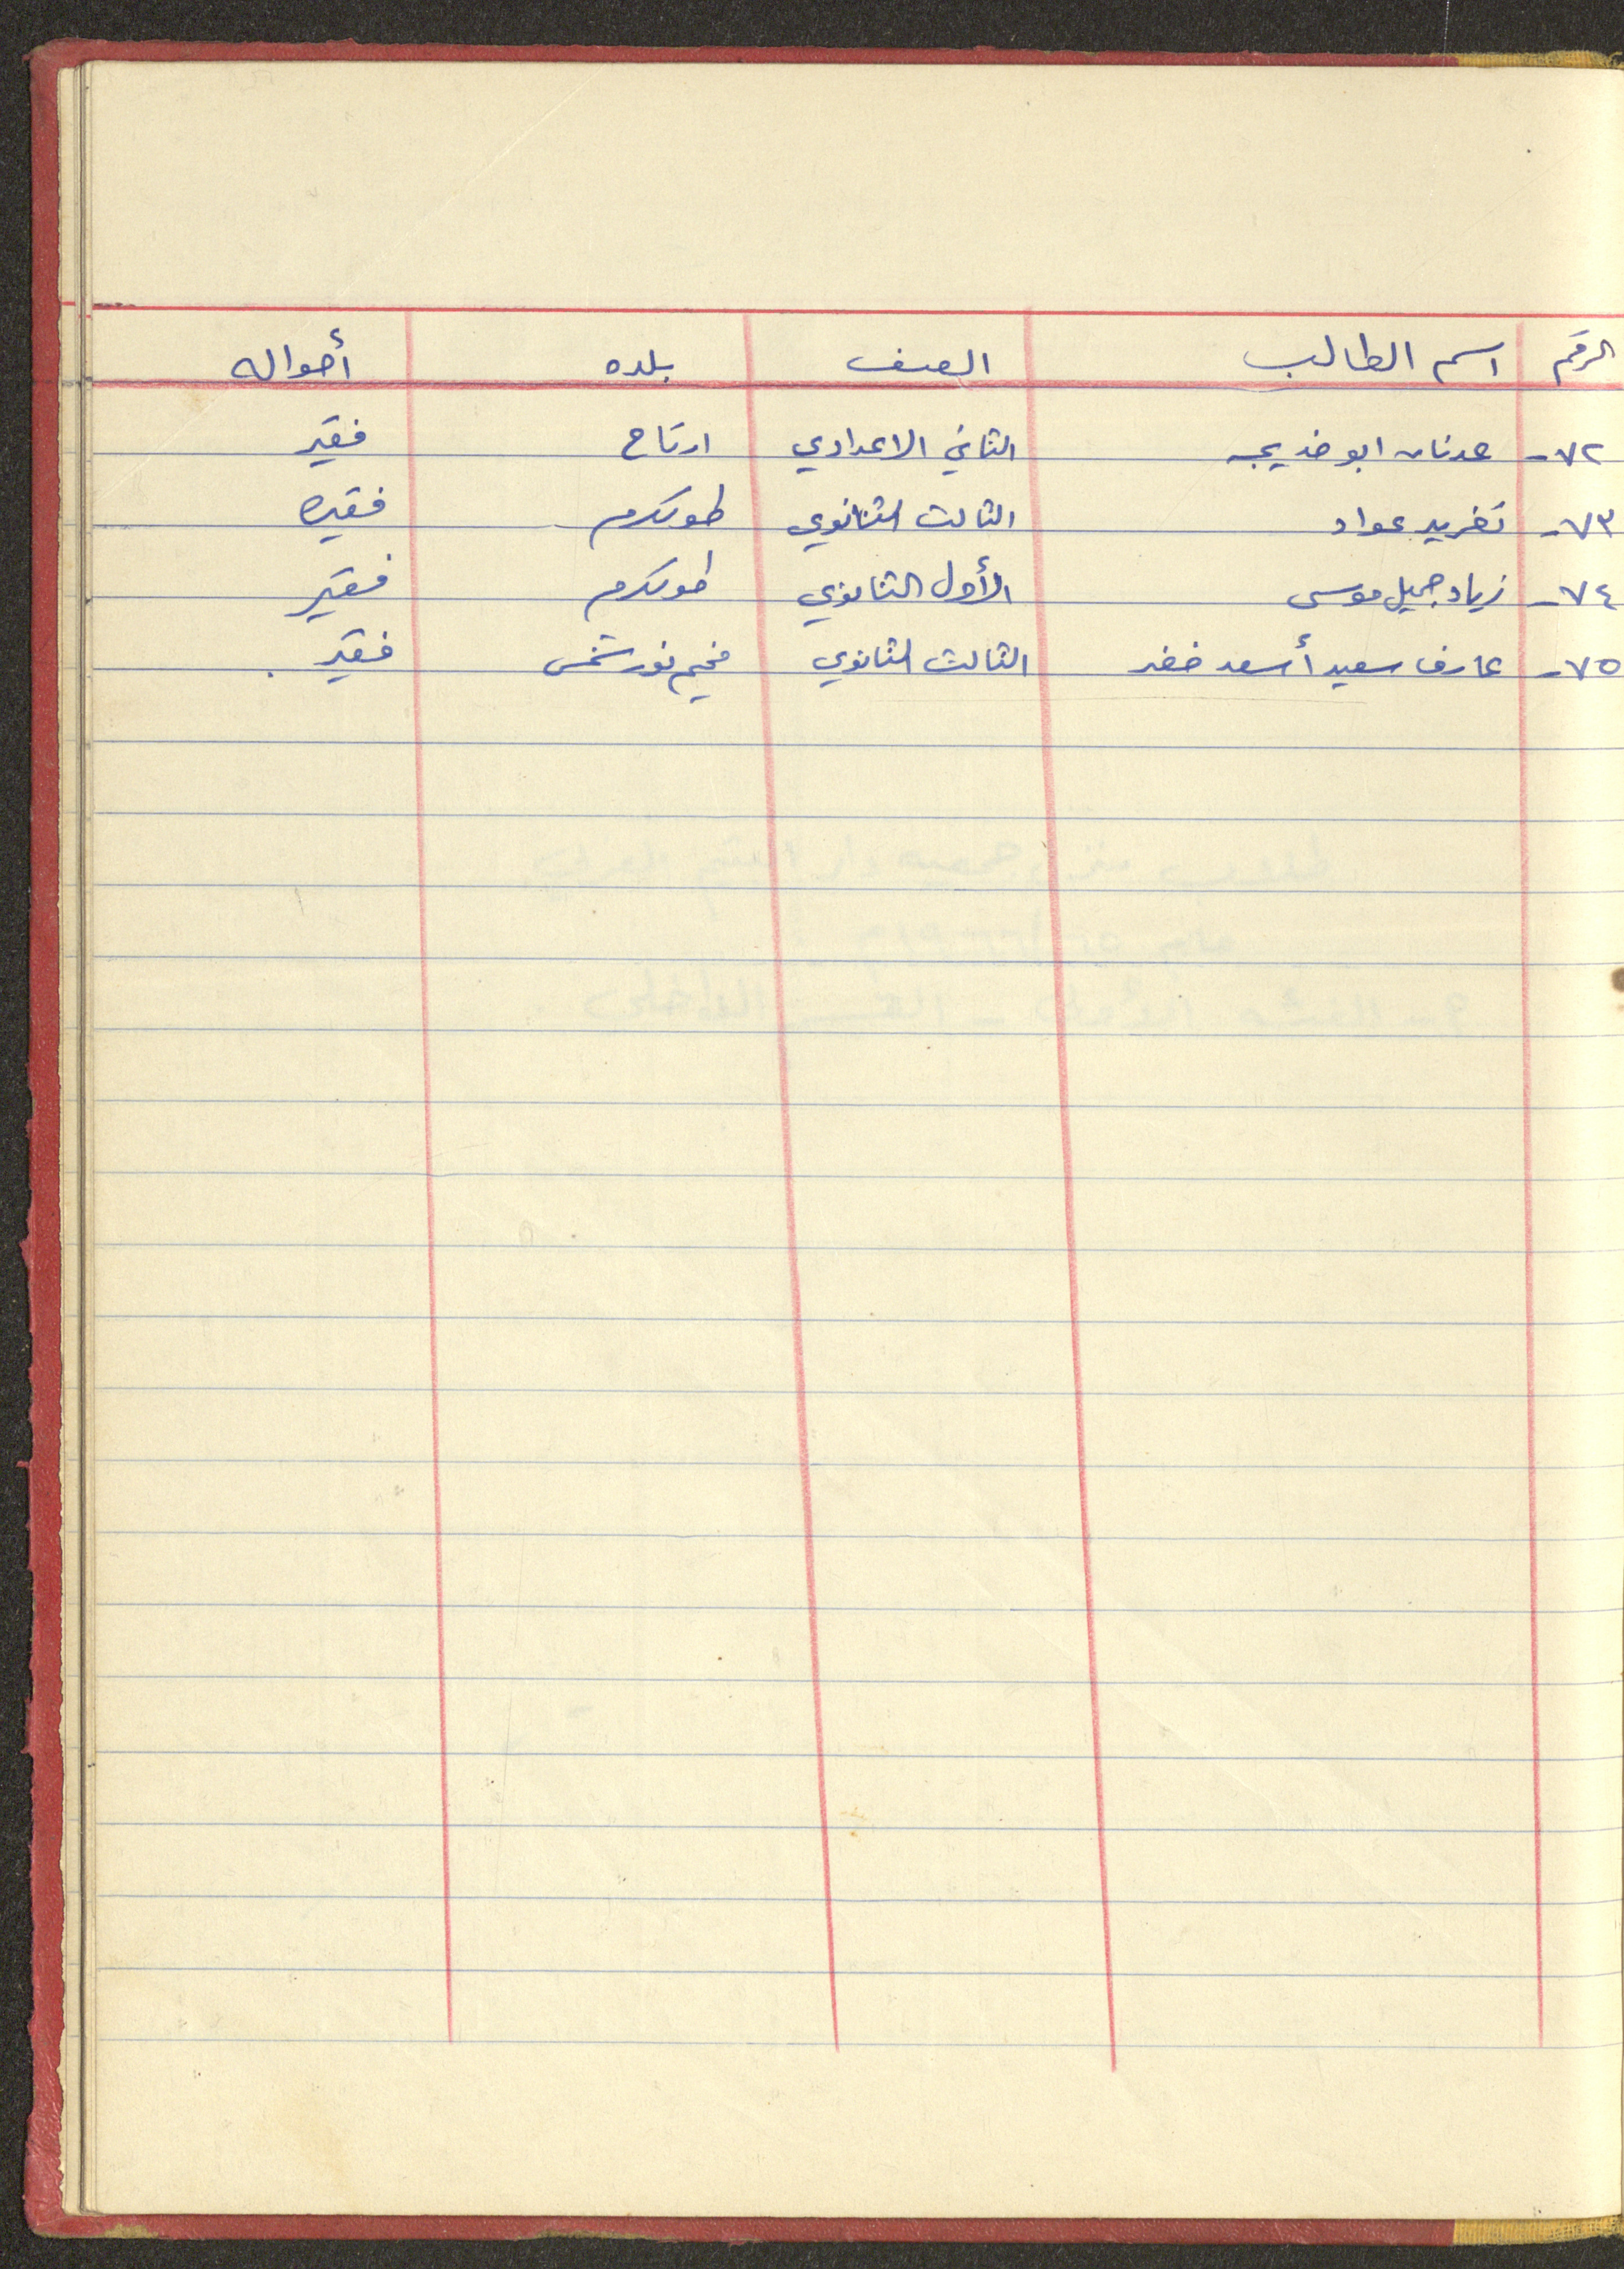 الرقم اسم الطالب الصف بلده أحواله
٧٢- عدنان ابو خديجه الثاني الاعدادي ارتاح فقير
٧٣- تغريد عواد الثالث الثانوي طولكرم فقيره
٧٤- زياد جميل موسى الأول الثانوي طولكرم فقير
٧٥- عارف سعيد أسعد خضر الثالث الثانوي مخيم نور شمس فقير.